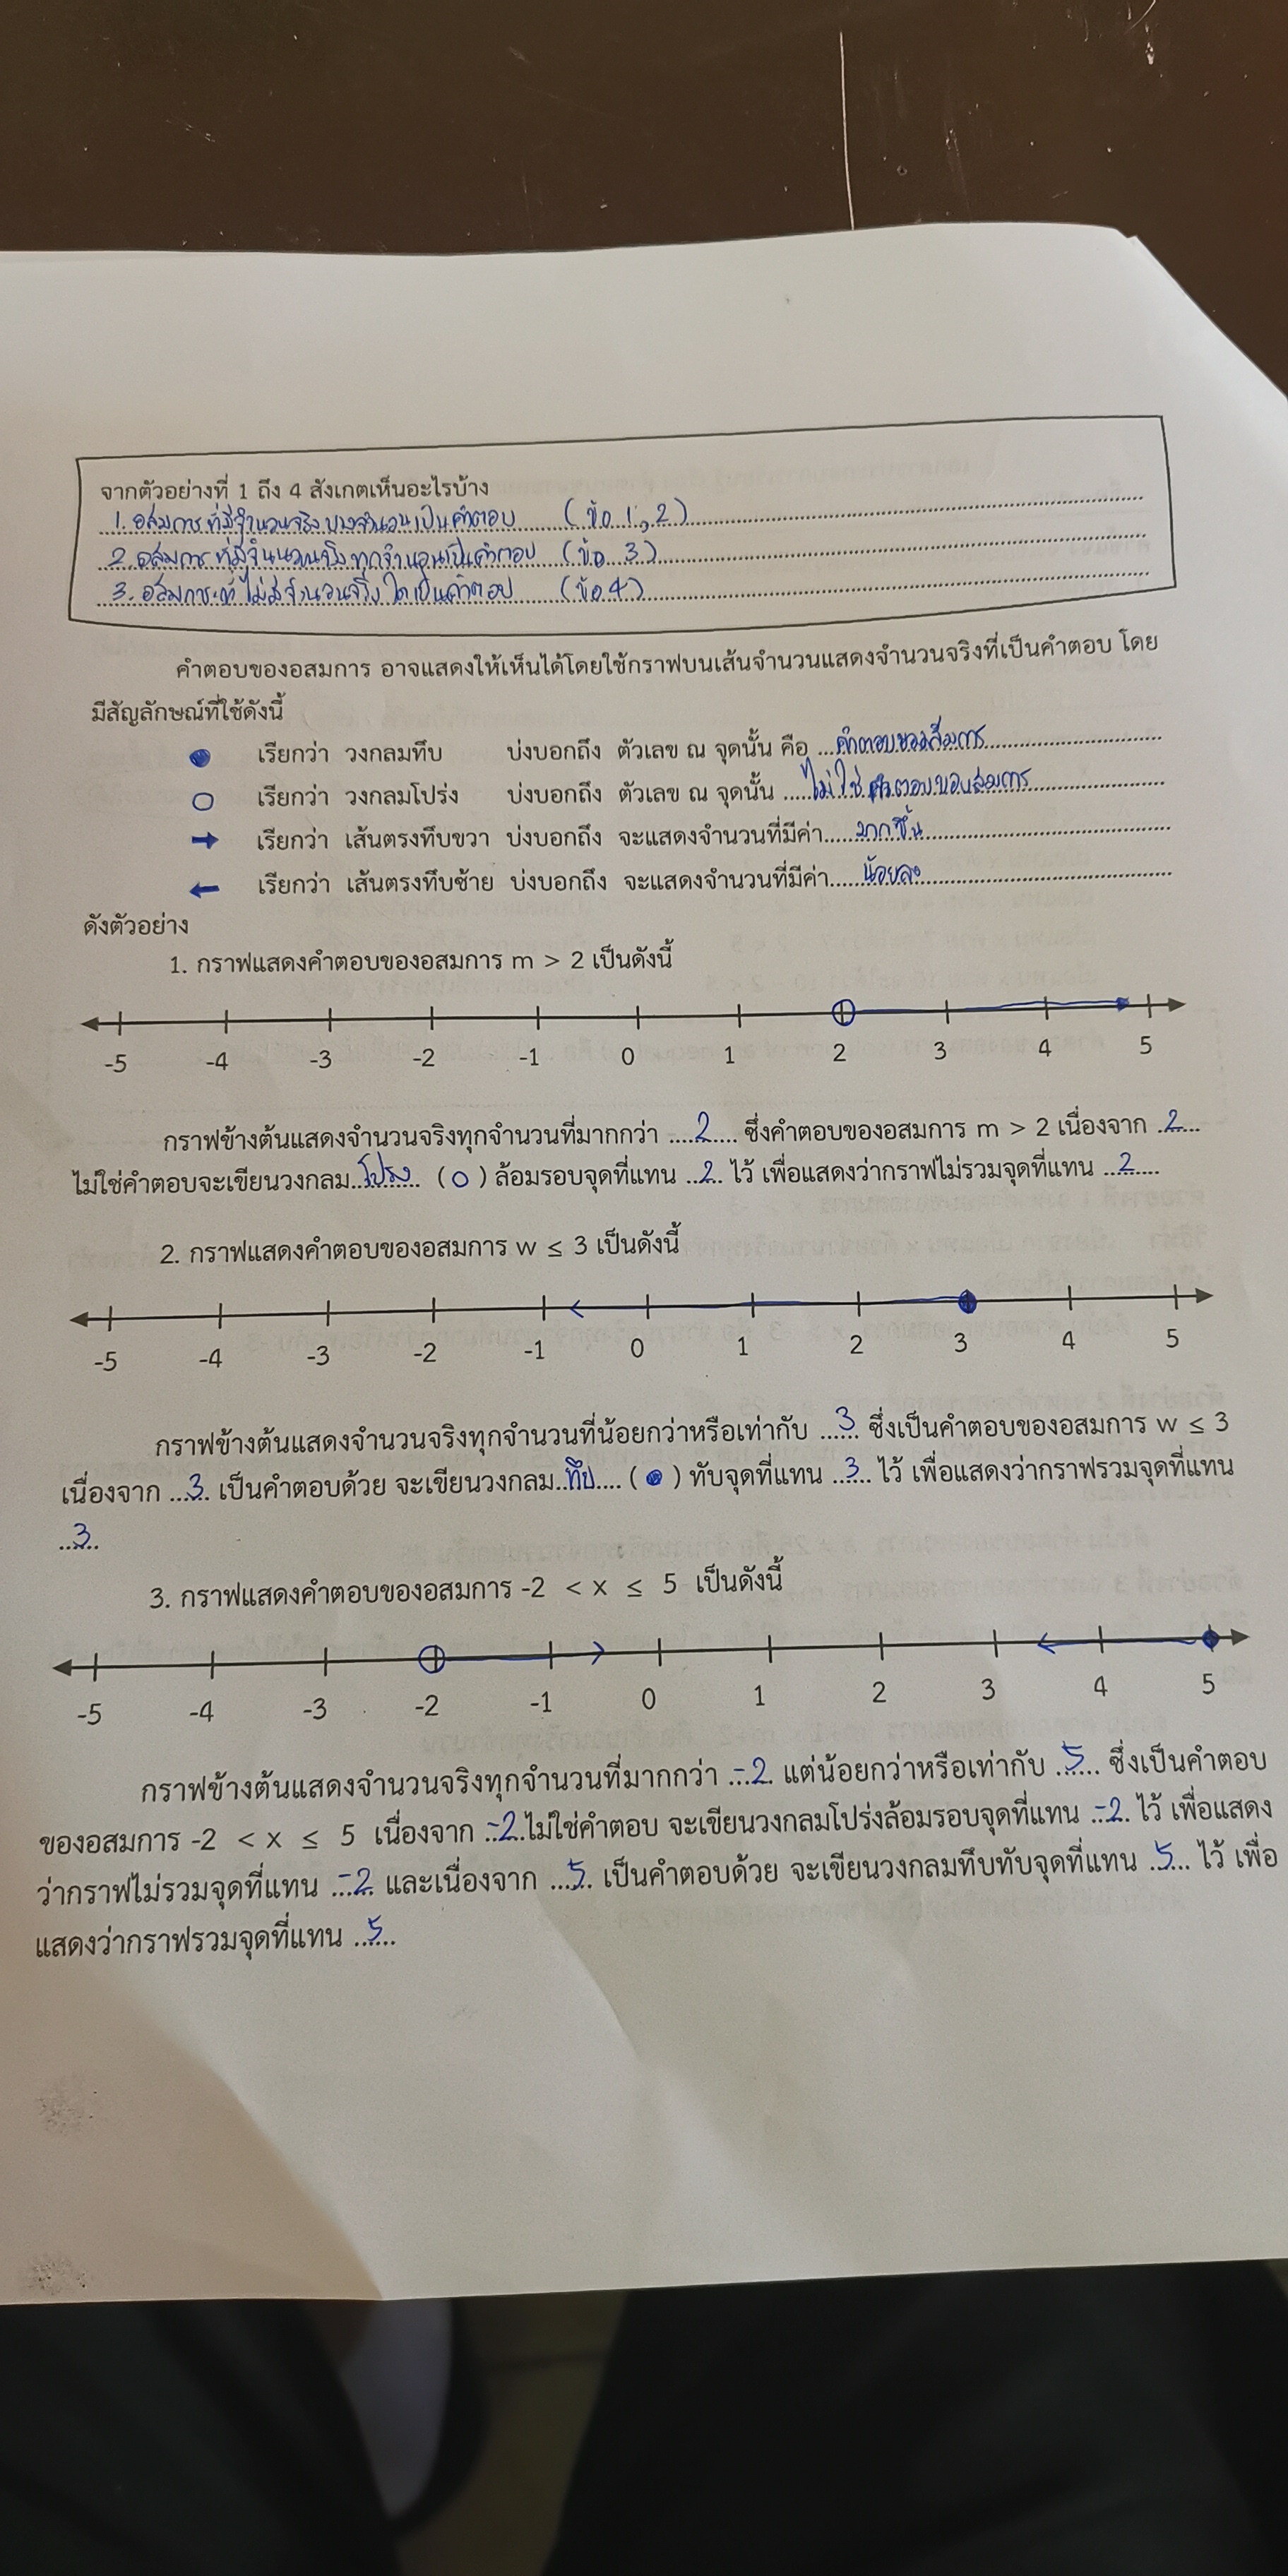 จากตัวอย่างที่ 1 ถึง 4 สังเกตเห็นอะไรบ้าง
1. อสมการที่มีจำนวนจริงบางจำนวนเป็นคำตอบ (ข้อ 1, 2)
2. อสมการที่มีจำนวนจริงทุกจำนวนเป็นคำตอบ (ข้อ 3)
3. อสมการที่ไม่มีจำนวนจริงใดเป็นคำตอบ (ข้อ 4)
คำตอบของอสมการ อาจแสดงให้เห็นได้โดยใช้กราฟบนเส้นจำนวนแสดงจำนวนจริงที่เป็นคำตอบ โดย
มีสัญลักษณ์ที่ใช้ดังนี้
● เรียกว่า วงกลมทึบ บ่งบอกถึง ตัวเลข ณ จุดนั้น คือ ...คำตอบของสมการ...
○ เรียกว่า วงกลมโปร่ง บ่งบอกถึง ตัวเลข ณ จุดนั้น ...ไม่ใช่คำตอบของสมการ...
→ เรียกว่า เส้นตรงทึบขวา บ่งบอกถึง จะแสดงจำนวนที่มีค่า...มากขึ้น...
← เรียกว่า เส้นตรงทึบซ้าย บ่งบอกถึง จะแสดงจำนวนที่มีค่า...น้อยลง...
ดังตัวอย่าง
1. กราฟแสดงคำตอบของอสมการ m > 2 เป็นดังนี้
-5 -4 -3 -2 -1 0 1 2 3 4 5
กราฟข้างต้นแสดงจำนวนจริงทุกจำนวนที่มากกว่า ...2... ซึ่งคำตอบของอสมการ m > 2 เนื่องจาก ...2...
ไม่ใช่คำตอบจะเขียนวงกลม...โปร่ง... (○) ล้อมรอบจุดที่แทน ...2... ไว้ เพื่อแสดงว่ากราฟไม่รวมจุดที่แทน ...2...
2. กราฟแสดงคำตอบของอสมการ w ≤ 3 เป็นดังนี้
-5 -4 -3 -2 -1 0 1 2 3 4 5
กราฟข้างต้นแสดงจำนวนจริงทุกจำนวนที่น้อยกว่าหรือเท่ากับ ...3... ซึ่งเป็นคำตอบของอสมการ w ≤ 3
เนื่องจาก ...3... เป็นคำตอบด้วย จะเขียนวงกลม...ทึบ... (●) ทับจุดที่แทน ...3... ไว้ เพื่อแสดงว่ากราฟรวมจุดที่แทน
...3...
3. กราฟแสดงคำตอบของอสมการ -2 < x ≤ 5 เป็นดังนี้
-5 -4 -3 -2 -1 0 1 2 3 4 5
กราฟข้างต้นแสดงจำนวนจริงทุกจำนวนที่มากกว่า ...-2... แต่น้อยกว่าหรือเท่ากับ ...5... ซึ่งเป็นคำตอบ
ของอสมการ -2 < x ≤ 5 เนื่องจาก ...-2...ไม่ใช่คำตอบ จะเขียนวงกลมโปร่งล้อมรอบจุดที่แทน ...-2... ไว้ เพื่อแสดง
ว่ากราฟไม่รวมจุดที่แทน ...-2... และเนื่องจาก ...5... เป็นคำตอบด้วย จะเขียนวงกลมทึบทับจุดที่แทน ...5... ไว้ เพื่อ
แสดงว่ากราฟรวมจุดที่แทน ...5...